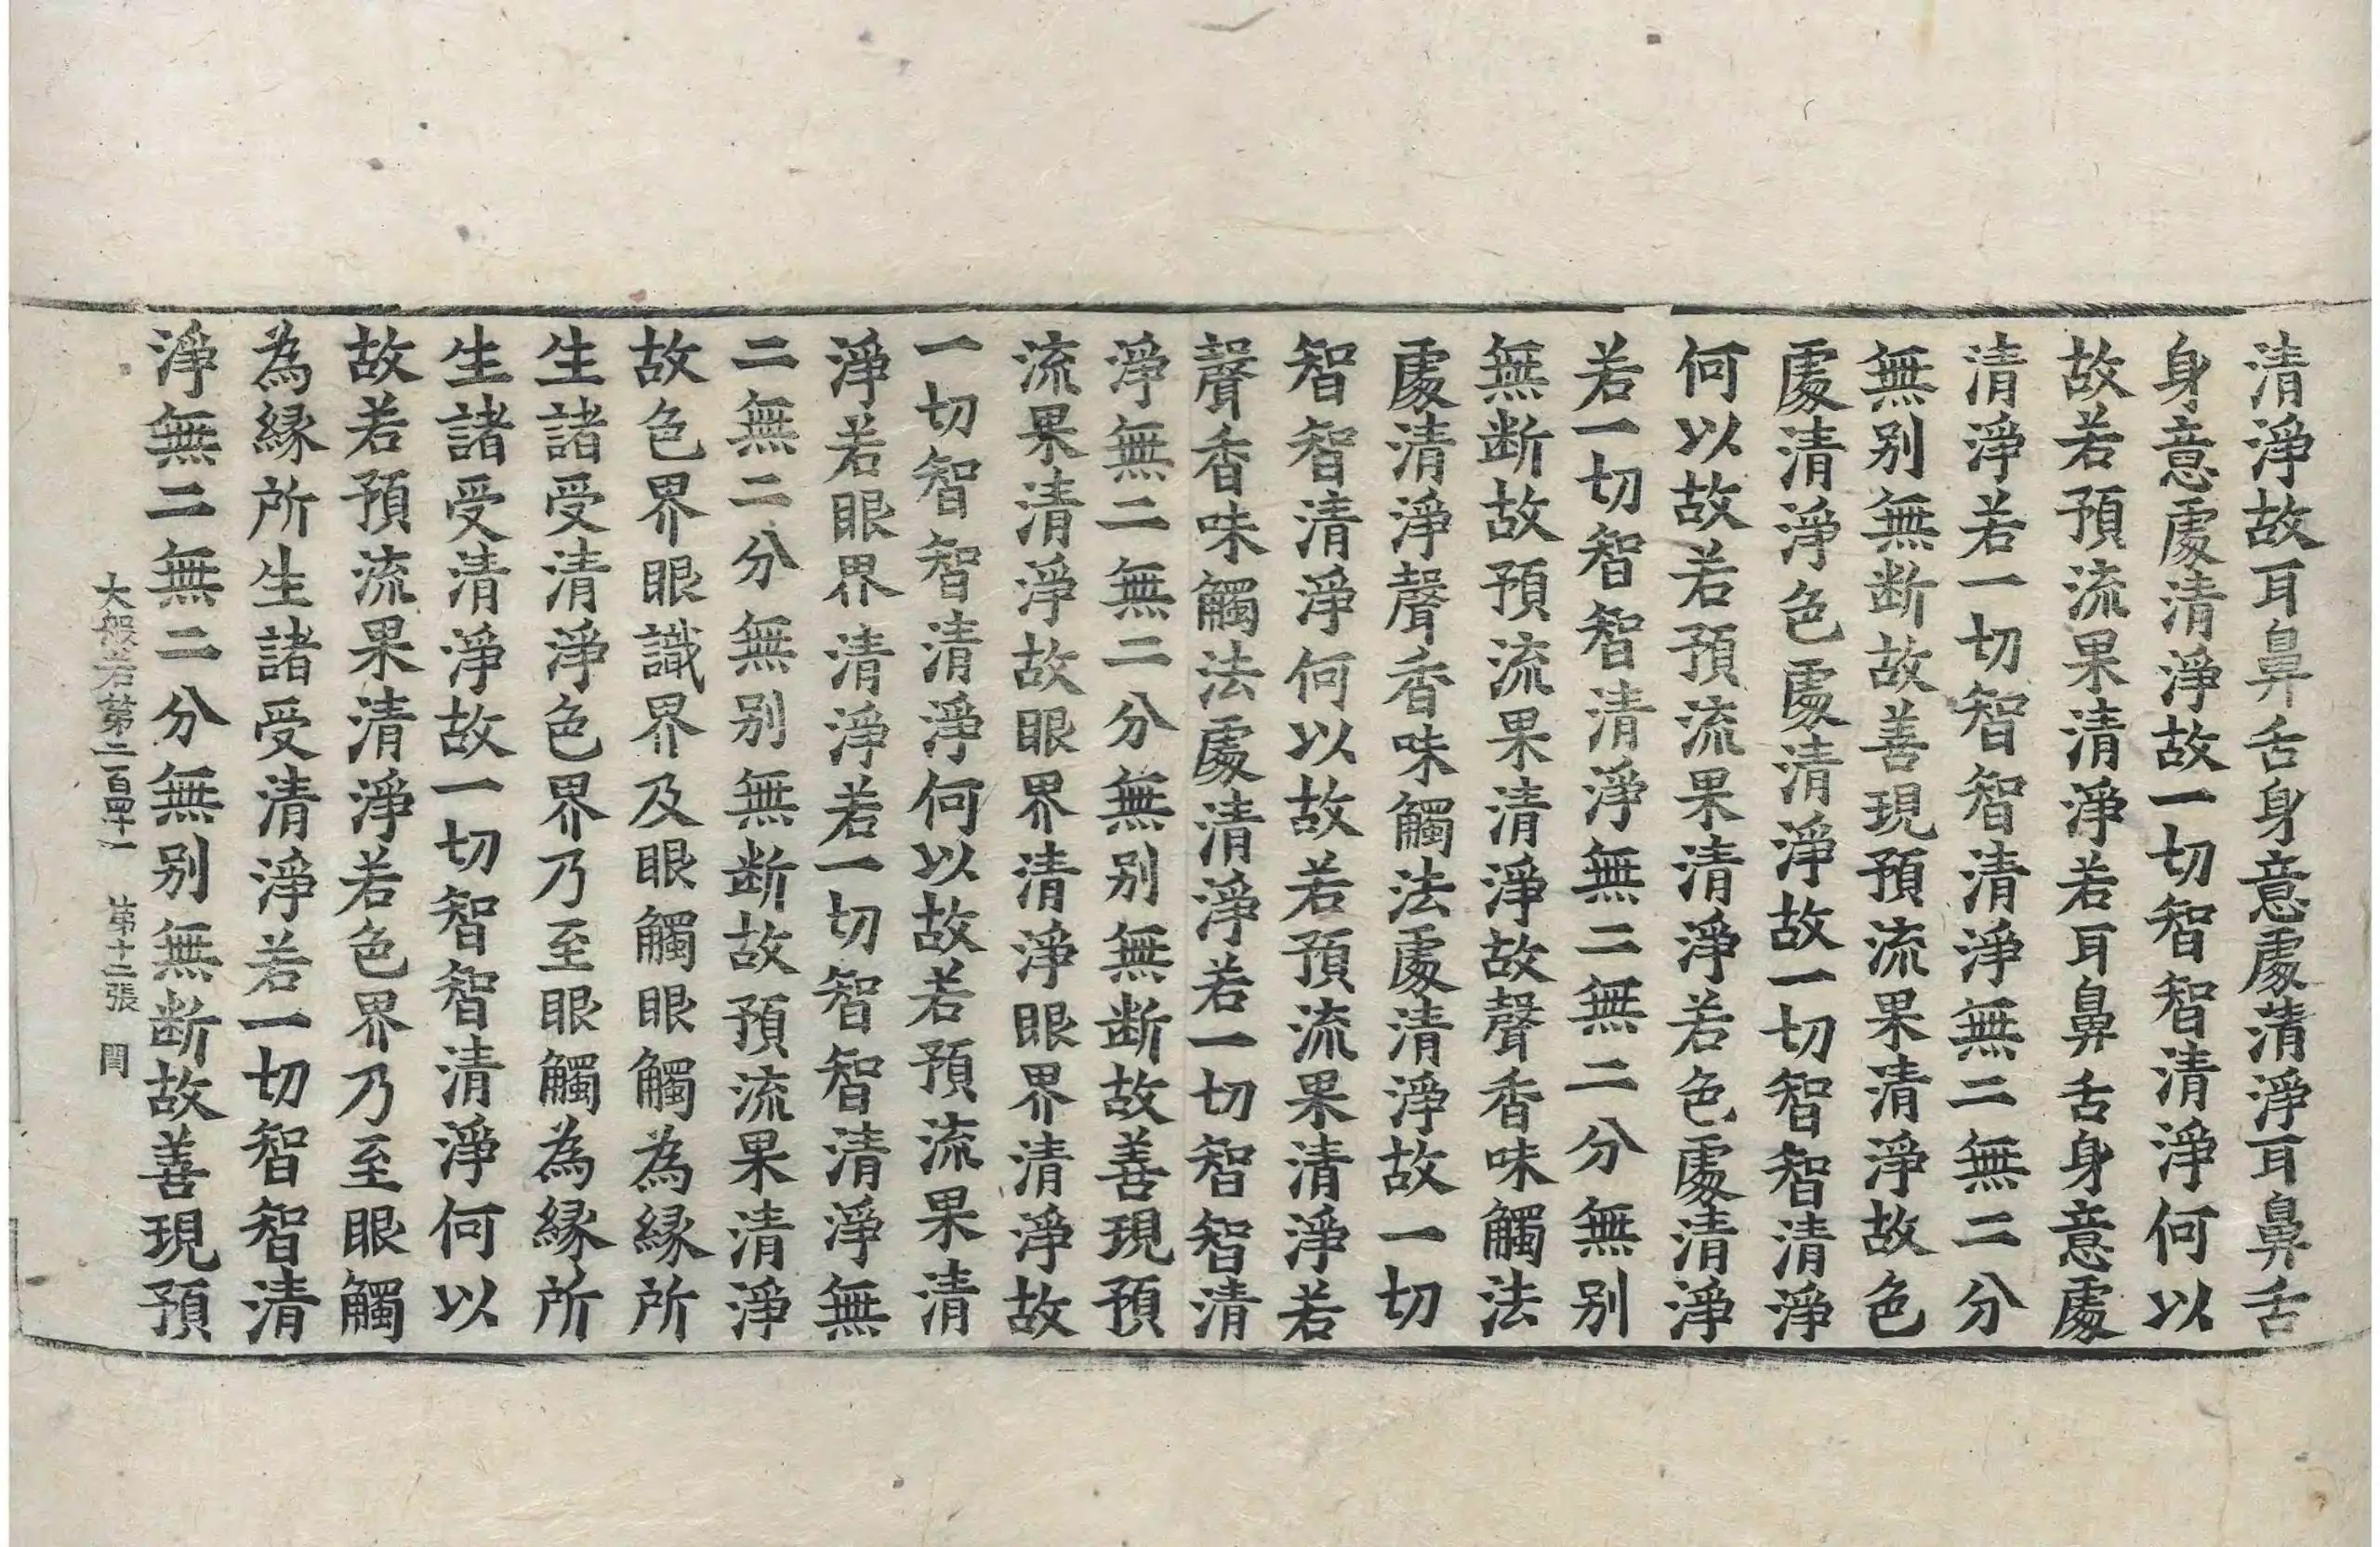 清淨故耳鼻舌身意處清淨耳鼻舌
身意處清淨故一切智智清淨何以
故若預流果清淨若耳鼻舌身意處
清淨若一切智智清淨無二無二分
無别無断故善現預流果清淨故色
處清淨色處清淨故一切智智清淨
何以故若預流果清淨若色處清淨
若一切智智清淨無二無二分無别
無断故預流果清淨故聲香味觸法
處清淨聲香味觸法處清淨故一切
智智清淨何以故若預流果清淨若
聲香味觸法處清淨若一切智智清
淨無二無二分無别無断故善現預
流果清淨故眼界清淨眼界清淨故
一切智智清淨何以故若預流果清
淨若眼界清淨若一切智智清淨無
二無二分無别無断故預流果清淨
故色界眼識界及眼觸眼觸為縁所
生諸受清淨色界乃至眼觸為縁所
生諸受清淨故一切智智清淨何以
故若預流果清淨若色界乃至眼觸
為縁所生諸受清淨若一切智智清
淨無二無二分無别無断故善現預
大般若第二百四十一 第十二張